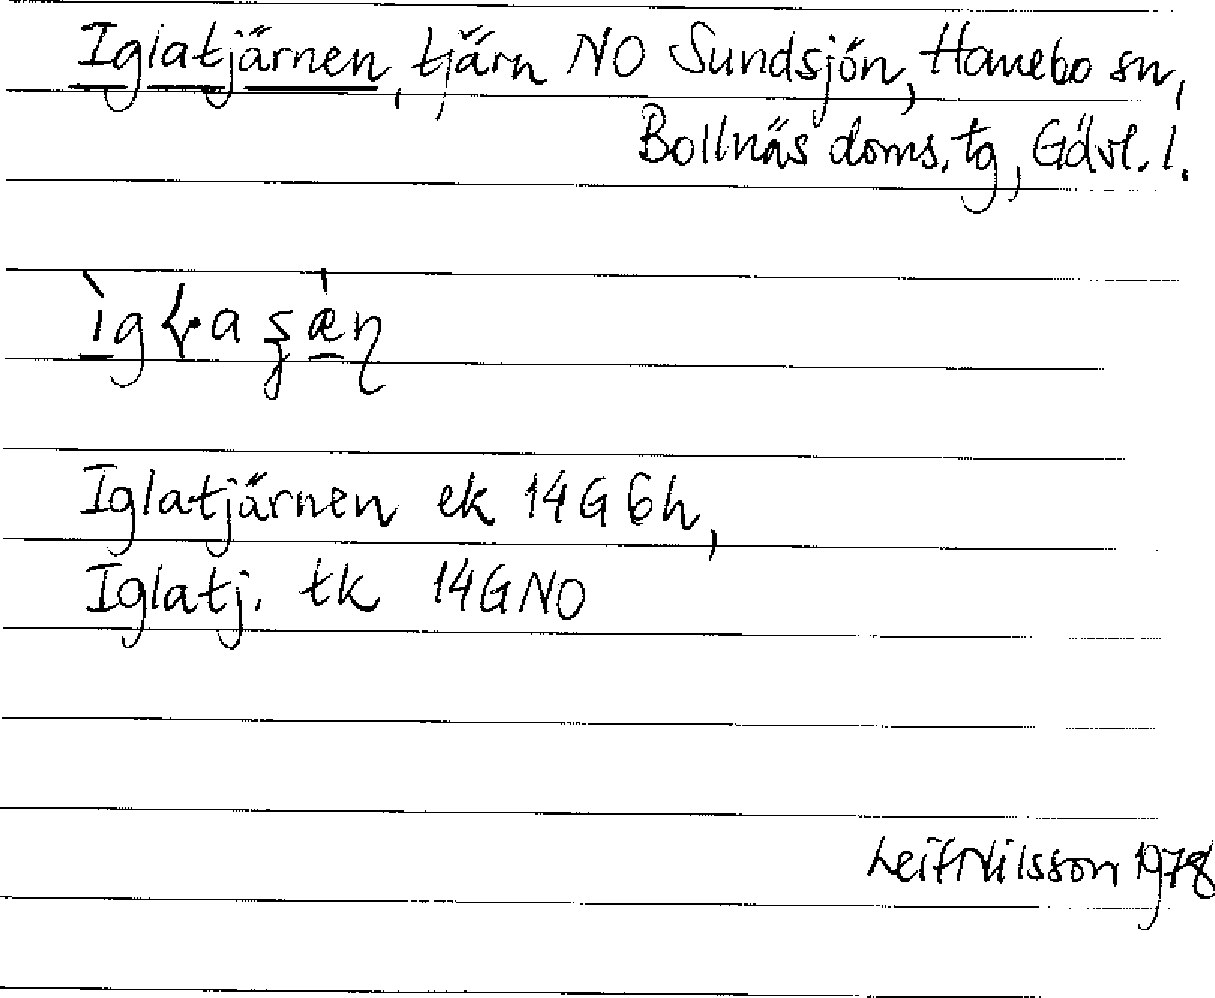 Iglatjärnen, tjärn NO Sundsjön, Hanebo sn,
Bollnäs doms. tg, Gävl. l.
Iglatjärnen ek 14G 6h,
Iglatj. tk 14GNO
Leif Nilsson 1978